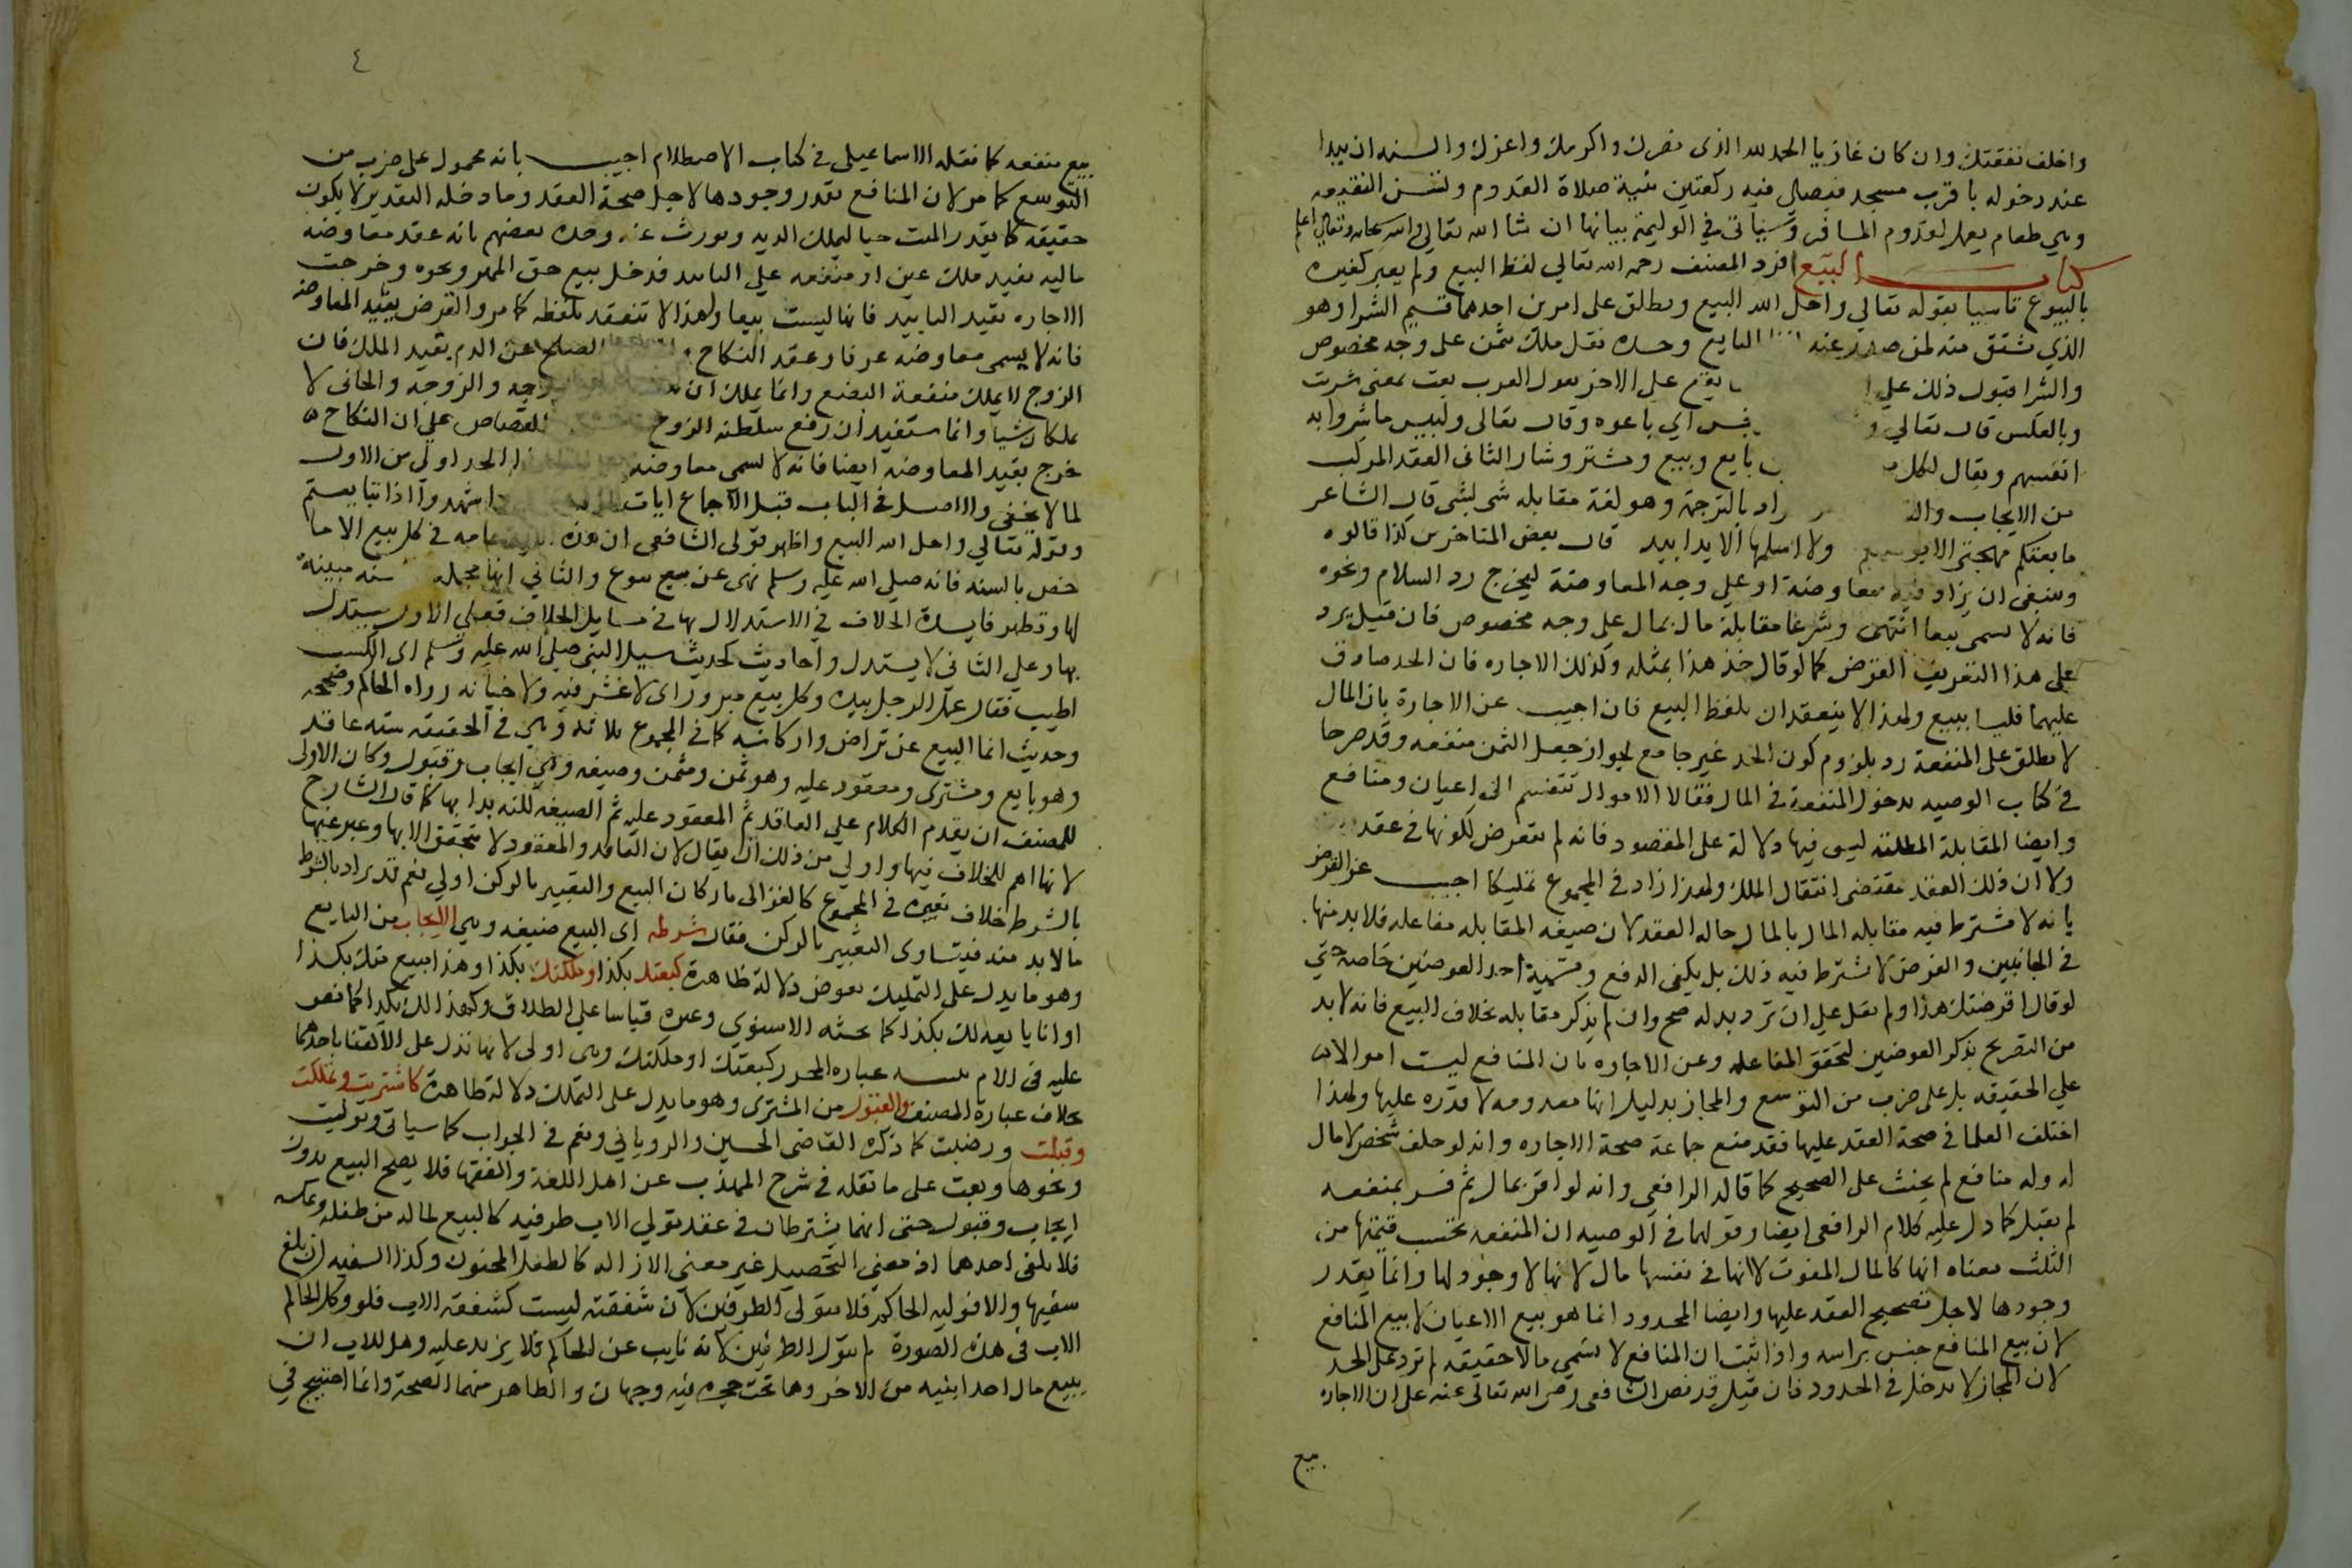 واخلف نفقتك وان كان غازيا الحمد لله الذى نصرك واكرمك واعزك والسنه ان يبدا
عند دخوله باقرب مسجد فيصلي فيه ركعتين بنية صلاة القدوم وتسن النقيعه
وهي طعام يعمل لقدوم المسافر وسياتى في الوليمة بيانها ان شا الله تعالى والله سبحانه وتعالى اعلم
كتاب البيع افرد المصنف رحمه الله تعالي لفظ البيع ولم يعبر كغيره
بالبيوع تاسيا بقوله تعالي واحل الله البيع ويطلق على امرين احدهما قسيم الشرا وهو
الذي يشتق منه لمن صدر عنه البايع وحده نقل ملك بثمن على وجه مخصوص
والشرا قبول ذلك علي ا يقع على الاخر تقول العرب بعت بمعنى شريت
وبالعكس قال تعالي و بخس اي باعوه وقال تعالى ولبيس ما شروا به
انفسهم ويقال لكل بايع وبيع ومشتر وشار الثانى العقد المركب
من الايجاب والق راد بالترجمة وهو لغة مقابله شى بشى قال الشاعر
ما بعتكم مهجتى الا ولا اسلمها الا يدا بيد قال بعض المتاخرين كذا قالوه
وينبغى ان يزاد فيه معاوضة او على وجه المعاوضة ليخرج رد السلام ونحوه
فانه لا يسمى بيعا انتهى وشرعا مقابلة مال بمال على وجه مخصوص فان قيل يرد
على هذا التعريف القرض كما لو قال خذ هذا بمثله وكذلك الاجاره فان الحد صادق
عليهما فليسا ببيع ولهذا لا ينعقدان بلفظ البيع فان اجيب عن الاجارة بان المال
لا يطلق على المنفعة رد بلزوم كون الحد غير جامع لجواز جعل الثمن منفعه وقد صرحا
فى كتاب الوصيه بدخول المنفعة فى المال فقالا الاموال تنقسم الى اعيان ومنافع
وايضا المقابلة المطلقه ليس فيها دلالة على المقصود فانه لم يتعرض لكونها فى عقد
ولا ان ذلك العقد يقتضى انتقال الملك ولهذا زاد فى المجموع تمليكا اجيب عن القرض
بانه لا يشترط فيه مقابله المال بالمال حاله العقد لان صيغه المقابله مفاعله فلا بد منها
فى الجانبين والقرض لا يشترط فيه ذلك بل يكفى الدفع وتسمية احد العوضين خاصة حتى
لو قال اقرضتك هذا ولم يقل على ان ترد بدله صح وان لم يذكر مقابله بخلاف البيع فانه لا بد
من التصريح بذكر العوضين لتحقق المفاعله وعن الاجاره بان المنافع ليست اموالا
علي الحقيقه بل على ضرب من التوسع والمجاز بدليل انها معدومه لا قدره عليها ولهذا
اختلف العلما فى صحة العقد عليها فقد منع جماعة صحة الاجاره وانه لو حلف شخص لا مال
له وله منافع لم يحنث على الصحيح كما قاله الرافعي وانه لو اقر بمال ثم فسر بمنفعه
لم يقبل كما دل عليه كلام الرافعى ايضا وقولهما فى الوصيه ان المنفعه تحتسب قيمتها من
الثلث معناه انها كالمال المفوت لا انها فى نفسها مال لانها لا وجود لها وانما يقدر
وجودها لاجل تصحيح العقد عليها وايضا المحدود انما هو بيع الاعيان لا بيع المنافع
لان بيع المنافع جنس براسه واذا ثبت ان المنافع لا تسمى مالا حقيقه لم ترد على الحد
لان المجاز لا يدخل فى الحدود فان قيل قد نص الشافعى رضى الله تعالى عنه على ان الاجاره
بيع
٤
بيع منفعه كما نقله الاسماعيلى فى كتاب الاصطلام اجيب بانه محمول على ضرب من
التوسع كما مر لان المنافع يقدر وجودها لاجل صحة العقد وما دخله التقدير لا يكون
حقيقه كما يقدر الميت حيا ليملك الديه ويورث عنه وحده بعضهم بانه عقد معاوضه
ماليه يفيد ملك عين او منفعه علي التابيد فدخل بيع حق الممر ونحوه وخرجت
الاجاره بقيد التابيد فانها ليست بيعا ولهذا لا تنعقد بلفظه كما مر والقرض بقيد المعاوضه
فانه لا يسمى معاوضه عرفا وعقد النكاح الصلح عن الدم بقيد الملك فان
الزوج لا يملك منفعة البضع وانما يملك ان والزوجه والجانى لا
يملكان شيا وانما يستفيد ان رفع سلطنه الزوج القصاص على ان النكاح
خرج بقيد المعاوضه ايضا فانه لا يسمى معاوضه الحد اولى من الاول
لما لا يخفى والاصل فى الباب قبل الاجماع ايات واشهدوا اذا تبايعتم
وقوله تعالى واحل الله البيع واظهر قولى الشافعى ان هذه عامه فى كل بيع الا ما
خص بالسنه فانه صلى الله عليه وسلم نهى عن بيوع والثاني انها مجمله سنه مبينة
لها وتظهر فايدة الخلاف فى الاستدلال بها فى مسايل الخلاف فعلى الاول يستدل
بها وعلى الثانى لا يستدل واحاديث كحديث سيل النبى صلى الله عليه وسلم اى الكسب
اطيب فقال عمل الرجل بيده وكل بيع مبرور اى لا غش فيه ولا خيانه رواه الحاكم وصححه
وحديث انما البيع عن تراض واركانه كما فى المجموع ثلاثه وهى فى الحقيقه سته عاقد
وهو بايع ومشترى ومعقود عليه وهو ثمن ومثمن وصيغه وهى ايجاب وقبول وكان الاولى
للمصنف ان يقدم الكلام علي العاقد ثم المعقود عليه ثم الصيغة لكنه بدا بها كما قال الشارح
لانها اهم للخلاف فيها واولي من ذلك ان يقال لان العاقد والمعقود لا يتحقق الا بها وعبر عنها
بالشرط خلاف تعبيره فى المجموع كالغزالى باركان البيع والتعبير بالركن اولي نعم قد يراد بالشرط
ما لا بد منه فيتساوى التعبير بالركن فقال شرطه اى البيع صيغه وهي الايجاب من البايع
وهو ما يدل على التمليك بعوض دلالة ظاهرة كبعتك بكذا وملكتك بكذا وهذا مبيع منك بكذا
او انا بايعه لك بكذا كما بحثه الاسنوي وغيره قياسا على الطلاق وكهذا لك بكذا كما نص
عليه فى الام عباره المحرر كبعتك او ملكتك وهى اولى لانها تدل على الاكتفا باحدهما
بخلاف عبارة المصنف والقبول من المشترى وهو ما يدل على التملك دلالة ظاهرة كاشتريت وتملكت
وقبلت ورضيت كما ذكره القاضى الحسين والرويانى ونعم فى الجواب كما سياتى وتوليت
ونحوها وبعت على ما نقله فى شرح المهذب عن اهل اللغة والفقها فلا يصح البيع بدون
ايجاب وقبول حتى انهما يشترطان فى عقد تولي الاب طرفيه كالبيع لماله من طفله وعكسه
فلا يلغى احدهما اذ معنى التحصيل غير معنى الازاله كالطفل المجنون وكذا السفيه ان بلغ
سفيها والا فوليه الحاكم فلا يتولي الطرفين لان شفقته ليست كشفقة الاب فلو وكل الحاكم
الاب فى هذه الصورة لم يتول الطرفين لانه نايب عن الحاكم فلا يزيد عليه وهل للاب ان
يبيع مال احد ابنيه من الاخر وهما تحت حجره فيه وجهان والظاهر منهما الصحة وانما احتيج فى